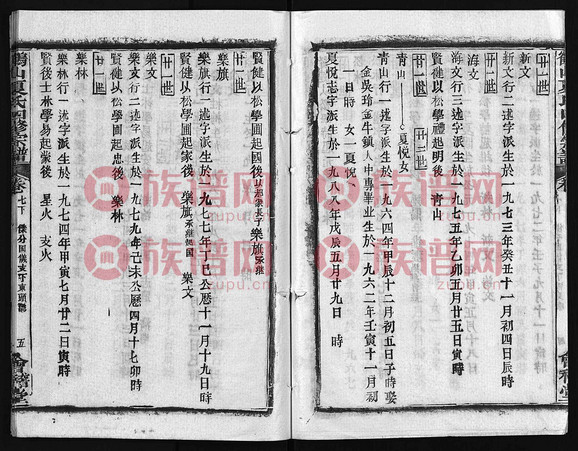 新文
新文行一 述字派生於一九七三年癸丑十一月初四日辰時
廿一世
海文
海文行三 述字派生於一九七五年乙卯五月廿五日寅時
賢健以松學禮起明後 青山
廿一世 廿二世
青山——夏悅女
青山行一 述字派生於一九六四年甲辰十二月初五日子時娶
金吳玲金牛鎮人中專畢業生於一九六二年壬寅十一月初
一日時 女一夏悅
夏悅志字派生於一九八八年戊辰五月廿九日 時
賢健以松學圖起家後 樂旗
廿一世
樂旗
樂旗行一 述字派生於一九七七年丁巳公曆十一月十九日時
賢健以松學圖起家後 樂旗 樂文
樂文
樂文行二 述字派生於一九七九年己未公曆四月十七卯時
賢健以松學圖起忠後 樂林
廿一世
樂林
樂林行一 述字派生於一九七四年甲寅七月廿二日寅時
賢後士林學易起蒙後 星火 支火
衡山夏氏四修宗譜 卷七下
五
會稽堂
族谱网
族谱网
族谱网
族谱网